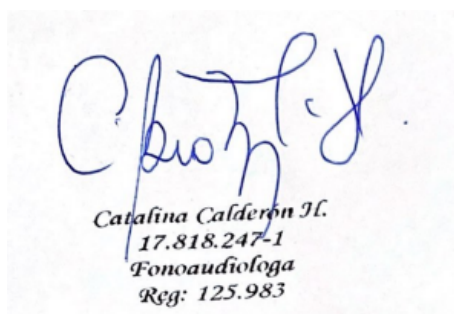 Catalina Calderón H.
17.818.247-1
Fonoaudiologa
Reg: 125.983